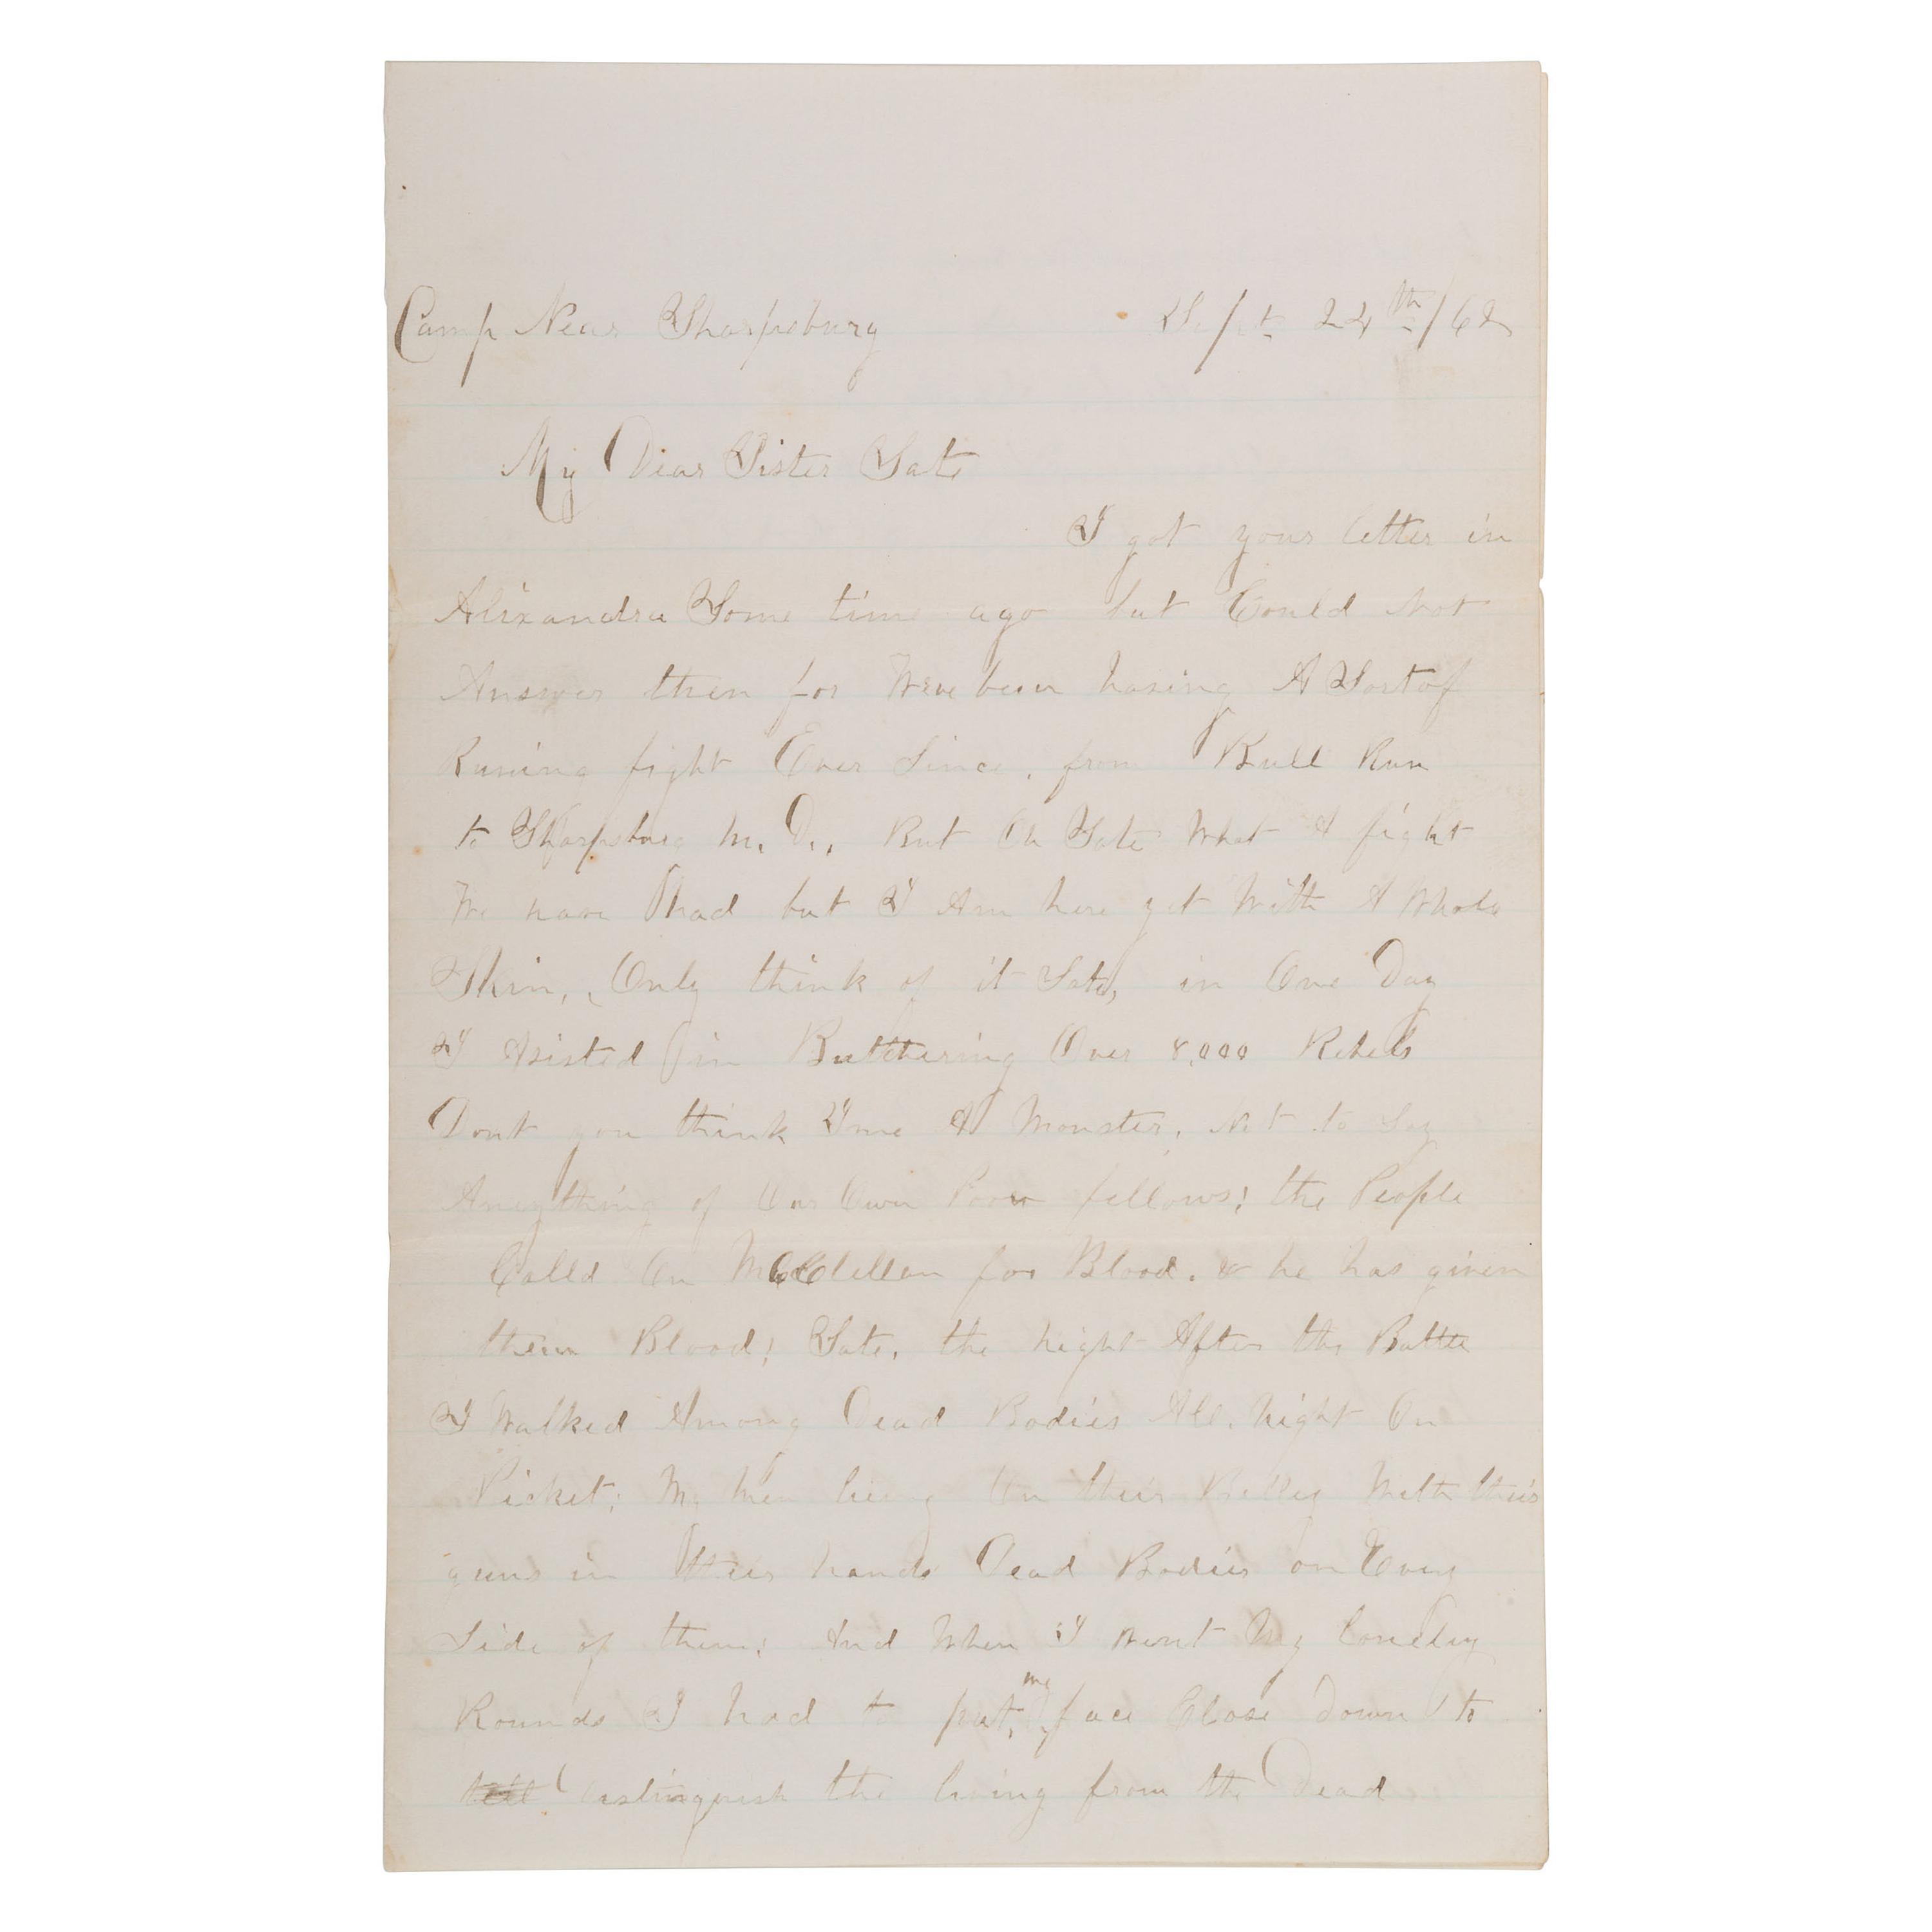 Camp Near Sharpsburg Sept 24th/62
My Dear Sister Sate
I got your letter in
Alixandra Some time ago but Could Not
Answer then for Weve been having A Sort of
Runing fight Ever Since, from Bull Run
to Sharpsburg M. D., But Oh Sate What A fight
We have had but I Am here yet With A Whole
Skin, Only think of it Sate, in One Day
I Asisted in Buttchering Over 8,000 Rebels
Dont you think Ime A Monster, Not to Say
Anything of Our Own Poor fellows; the People
Calld On McClellan for Blood. & he has given
them Blood; Sate, the night After the Battle
I Walked Among Dead Bodies All night On
Picket; My Men lieing On their Belleg With their
guns in their hands Dead Bodies on Every
Side of them; And When I Went My lonelly
Rounds I had to put my face Close Down to
tell distinguish the living from the Dead